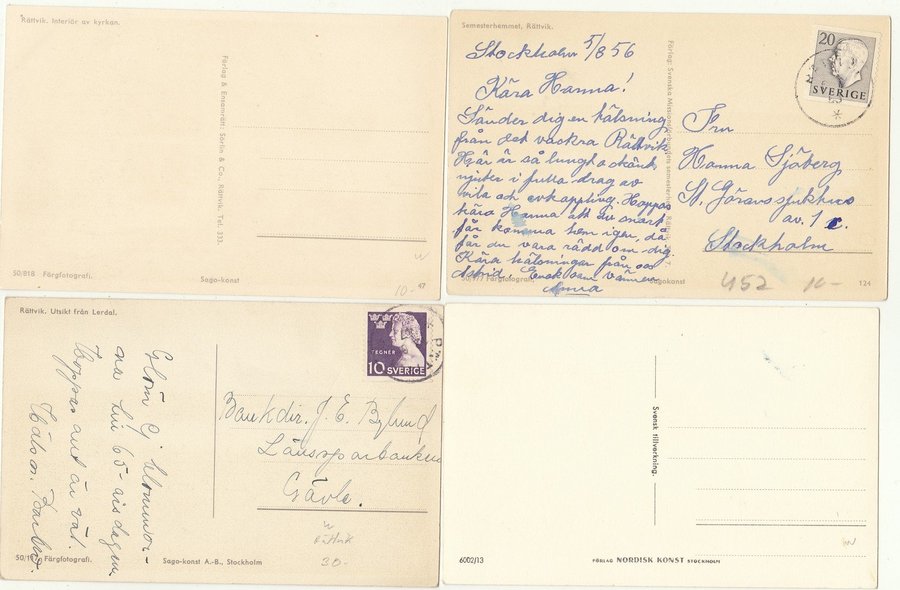 Rättvik. Interiör av kyrkan.
Förlag & Ensamrätt: Sörlin & Co., Rättvik. Tel. 333.
50/818 Färgfotografi.
Sago-konst
10- 47
Semesterhemmet, Rättvik.
Stockholm 5/8 56
Kära Hanna!
Sänder dig en hälsning
från det vackra Rättvik
Här är så lungt o skönt
njuter i fulla drag av
vila och avkoppling. Hoppas
kära Hanna att du snart
får komma hem igen, då
får du vara rädd om dig.
Kära hälsningar från oss
Astrid.
Anna
Förlag: Svenska Missionsförbundets semesterhem, Rättvik.
20
SVERIGE
Fru
Hanna Sjöberg
St. Görans sjukhus
av. 1
Stockholm
Färgfotografi.
Sagokonst
124
452 10-
Rättvik. Utsikt från Lerdal.
Glöm ej kommor-
na hin 65-årsdagen
Hoppas allt är väl.
Hälsn.
TEGNER
10 SVERIGE
Bankdir. J. E. Bylund
Länssparbanken
Gävle.
Färgfotografi.
Sago-konst A.-B., Stockholm
Rättvik
30-
Svensk tillverkning.
6002/13
FÖRLAG NORDISK KONST STOCKHOLM